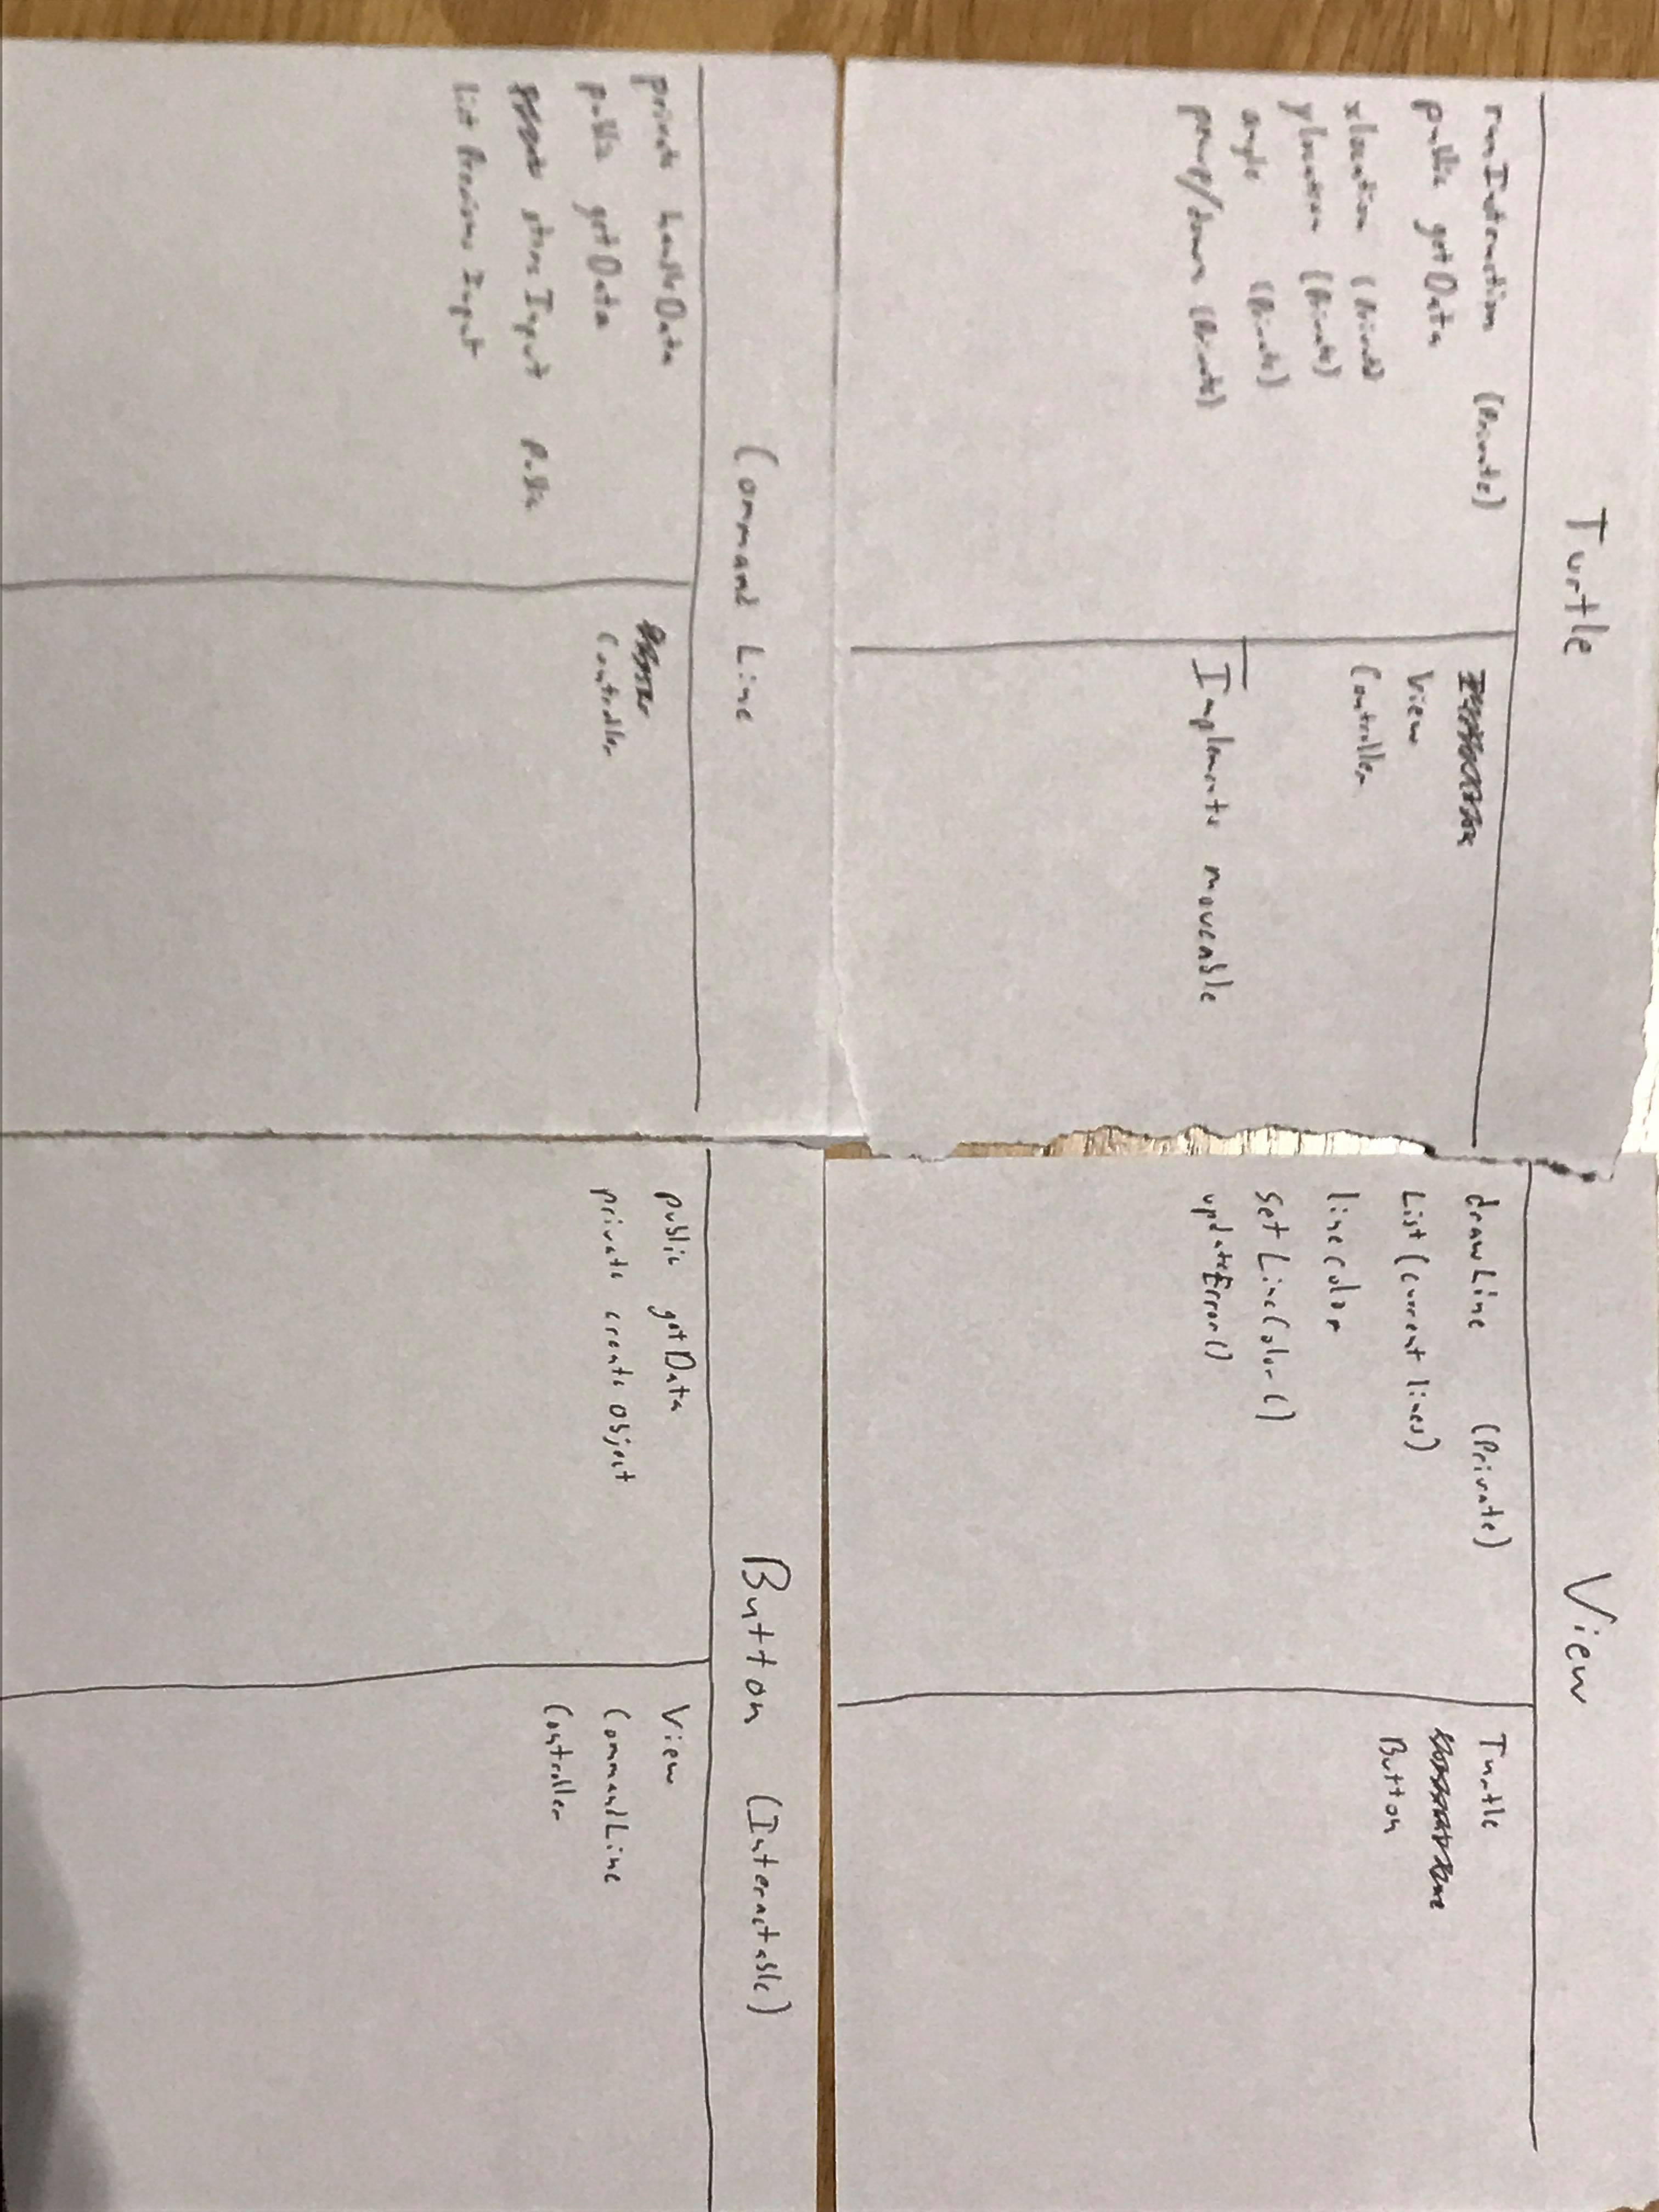 Turtle
runInstruction (Private)
public getData
xlocation (Private)
ylocation (Private)
angle (Private)
penup/down (Private)
View
Controller
Implements moveable
View
drawLine (Private)
List(current lines)
lineColor
setLineColor()
updateError()
Turtle
Button
Command Line
private handleData
public getData
store Input Public
list Previous Input
Controller
Button (Interactable)
public getData
private create object
View
CommandLine
Controller